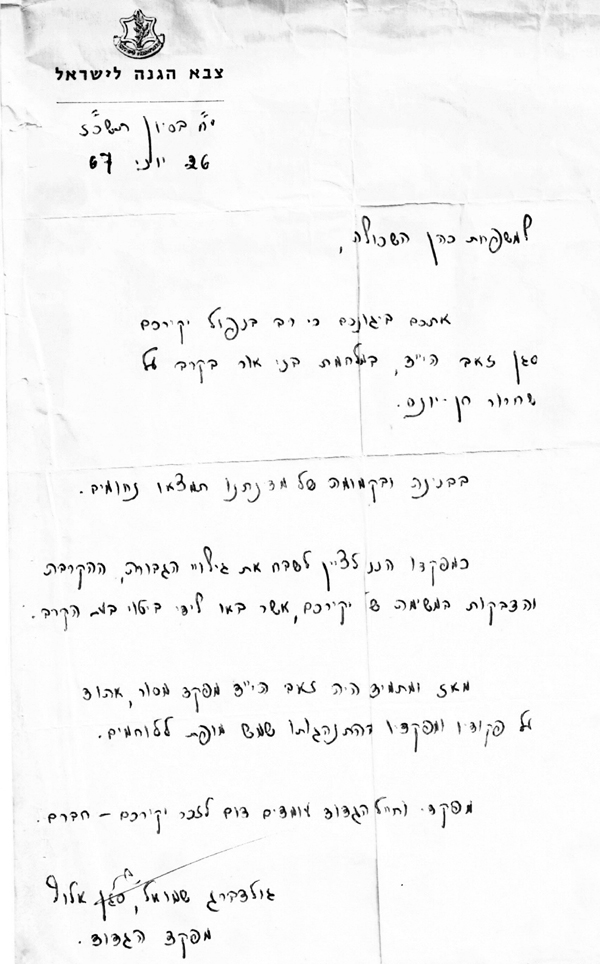 צבא הגנה לישראל
י"ח בסיון תשכ"ז
26 יוני 67
למשפחת כהן השכולה,
אתכם ביגונכם כי רב בנפול יקירכם
סגן זאב הי"ד, במלחמת בני אור בקרב על
שחרור חן-יונס.
בבנינה ובקמומה של מדינתנו תמצאו נחומים.
כמפקדו הנני לציין לשבח את גילויי הגבורה, ההקרבה
והדבקות במשימה של יקירכם, אשר באו לידי ביטוי בעת הקרב.
מאז ומתמיד היה זאב הי"ד מפקד מסור, אהוד
על פקודיו ומפקדיו והתנהגותו שמש מופת ללוחמים.
מפקדי וחיילי הגדוד עומדים דום לזכר יקירכם – חברם.
גולדברג שמואל, סגן אלוף
מפקד הגדוד.